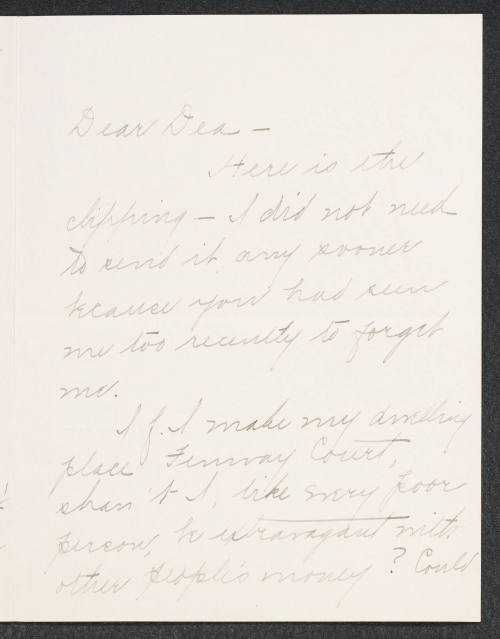 Dear Dea —
Here is the
clipping — I did not need
to send it any sooner
because you had seen
me too recently to forget
me.
If I make my dwelling
place Fenway Court,
shan't I, like every poor
person, be extravagant with
other people's money? Could